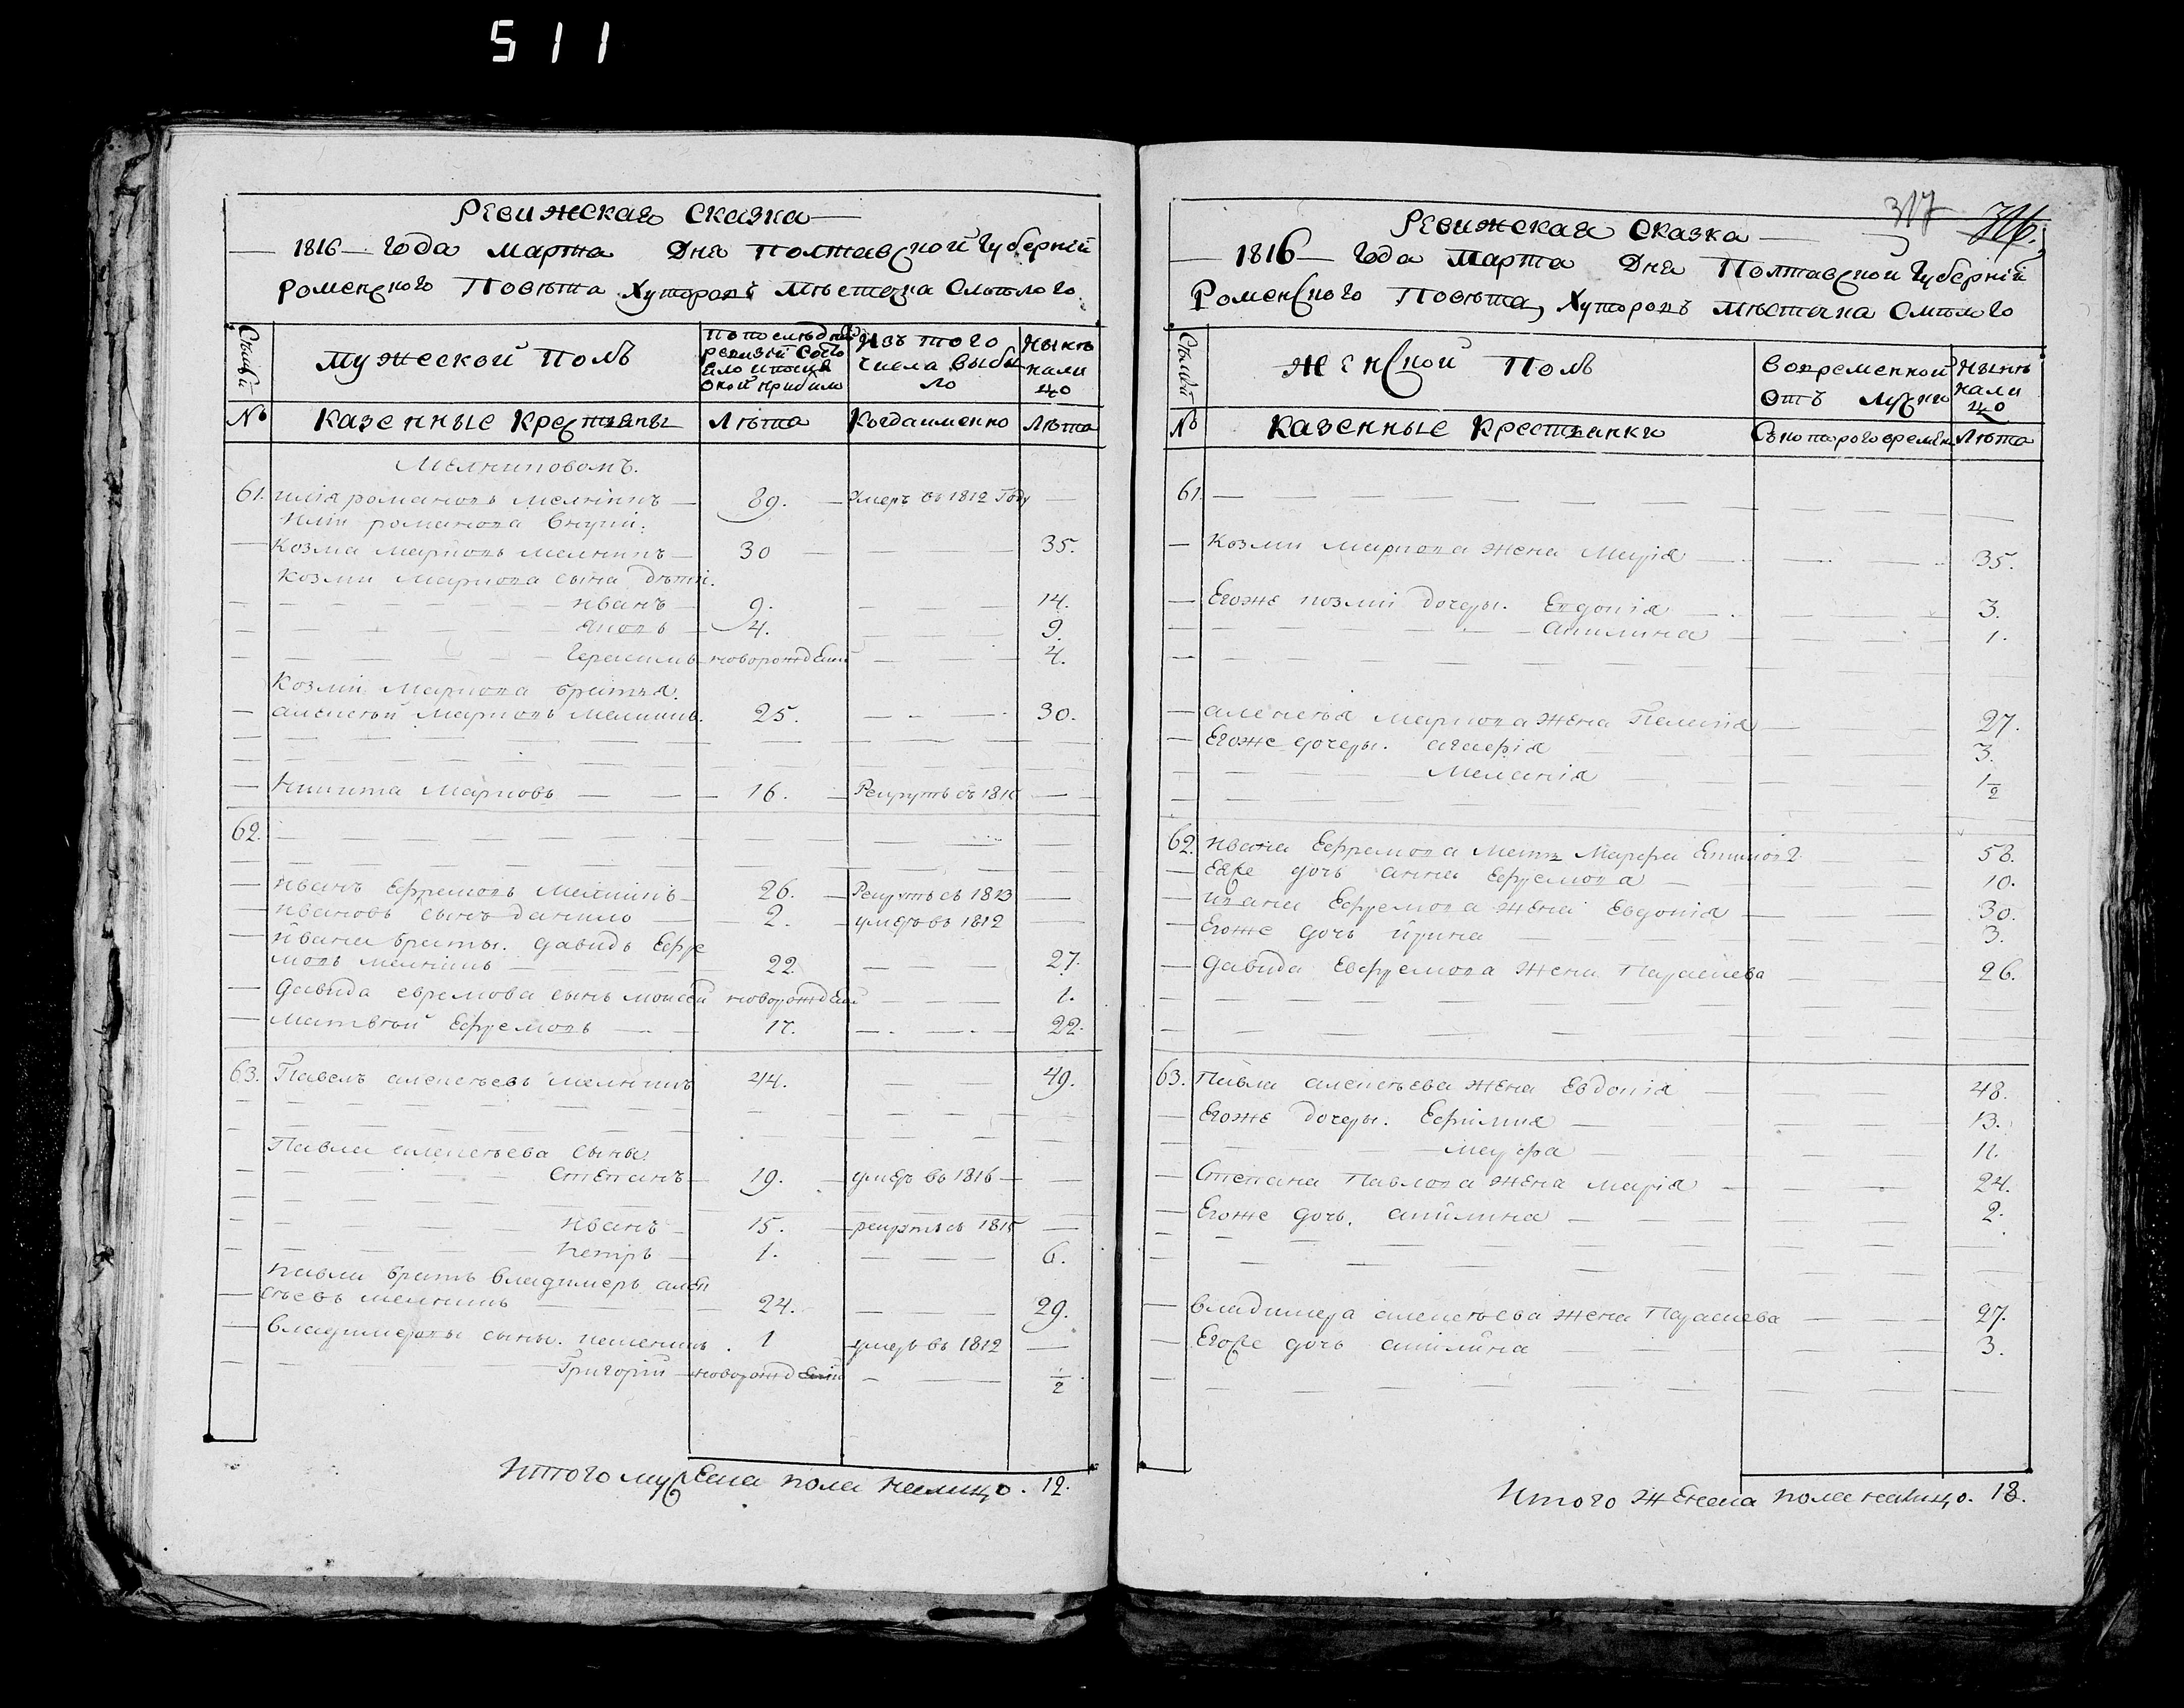 511
Ревижская Сказка
1816 Года Марта Дня Полтавской Губерніи
Роменского Повѣта Хуторовъ Мѣстечка Смѣлого
Семьи
Мужеской Полъ
По последней ревизіи состояло и после оной прибыло
Изъ того числа выбыло
Нынѣ налицо
№ Казенные Крестьяны Лѣта Когда именно Лѣта
Мелниковомъ.
61. Илія романовъ мелникъ 89. умеръ въ 1812 Году
Иліи романова внуки:
Козма Марковъ Мелникъ 30 35.
Козми Маркова сына дѣти.
Иванъ 9. 14.
Яковъ 4. 9.
Герасимъ новорожденй 4.
Козми Маркова братья.
алексѣй Марковъ Мелникъ. 25. 30.
Никита Марковъ 16. Рекрутъ въ 181
62.
Иванъ Ефремовъ Мелникъ 26. Рекрутъ съ 1813
Ивановъ сынъ данило 2. умеръ въ 1812
Ивана браты. давидъ Ефре
мовъ мелникъ 22. 27.
Давида ефремова сынъ моисей новорожденй 1.
Матвѣй Ефремовъ 17. 22.
63. Павелъ алексѣевъ мелникъ 44. 49.
Павла алексѣева сыны.
Степанъ 19. умеръ въ 1816
Иванъ 15. рекрутъ въ 181
Петръ 1. 6.
Павла братъ владимеръ алек
сѣевъ мелникъ 24. 29.
Владимеровы сыны. 1 умеръ въ 1812
Григорій новорожденій 1/2
Итого мужеска пола налицо. 12.
317 316.
Ревижская Сказка
1816 Года Марта Дня Полтавской Губерніи
Роменского Повѣта, Хуторовъ Мѣстечка Смѣлого
Семьи
Женской Полъ
Во временной отъ лучки
Нынѣ налицо
№ Казенные Крестьянки Съ которого времени Лѣта
61.
Козми Маркова жена Марія 35.
Егоже козми дочеры. Евдокія 3.
Акилина 1.
алексѣя Маркова жена Пелагія 27.
Егоже дочеры. агафія 3.
Меланія 1 1/2
62. Ивана Ефремова мать Марфа 58.
Ее дочь анна Ефремова 10.
Ивана Ефремова жена Евдокія 30.
Егоже дочь ирина 3.
Давида Евфремова жена Параскева 26.
63. Павла алексѣева жена Евдокія 48.
Егоже дочеры. Ефимия 13.
Марфа 11.
Степана Павлова жена марія 24.
Егоже дочь. акилина 2.
Владимера алексѣева жена Параскева 27.
Егоже дочь акилина 3.
Итого Женска пола налицо. 18.